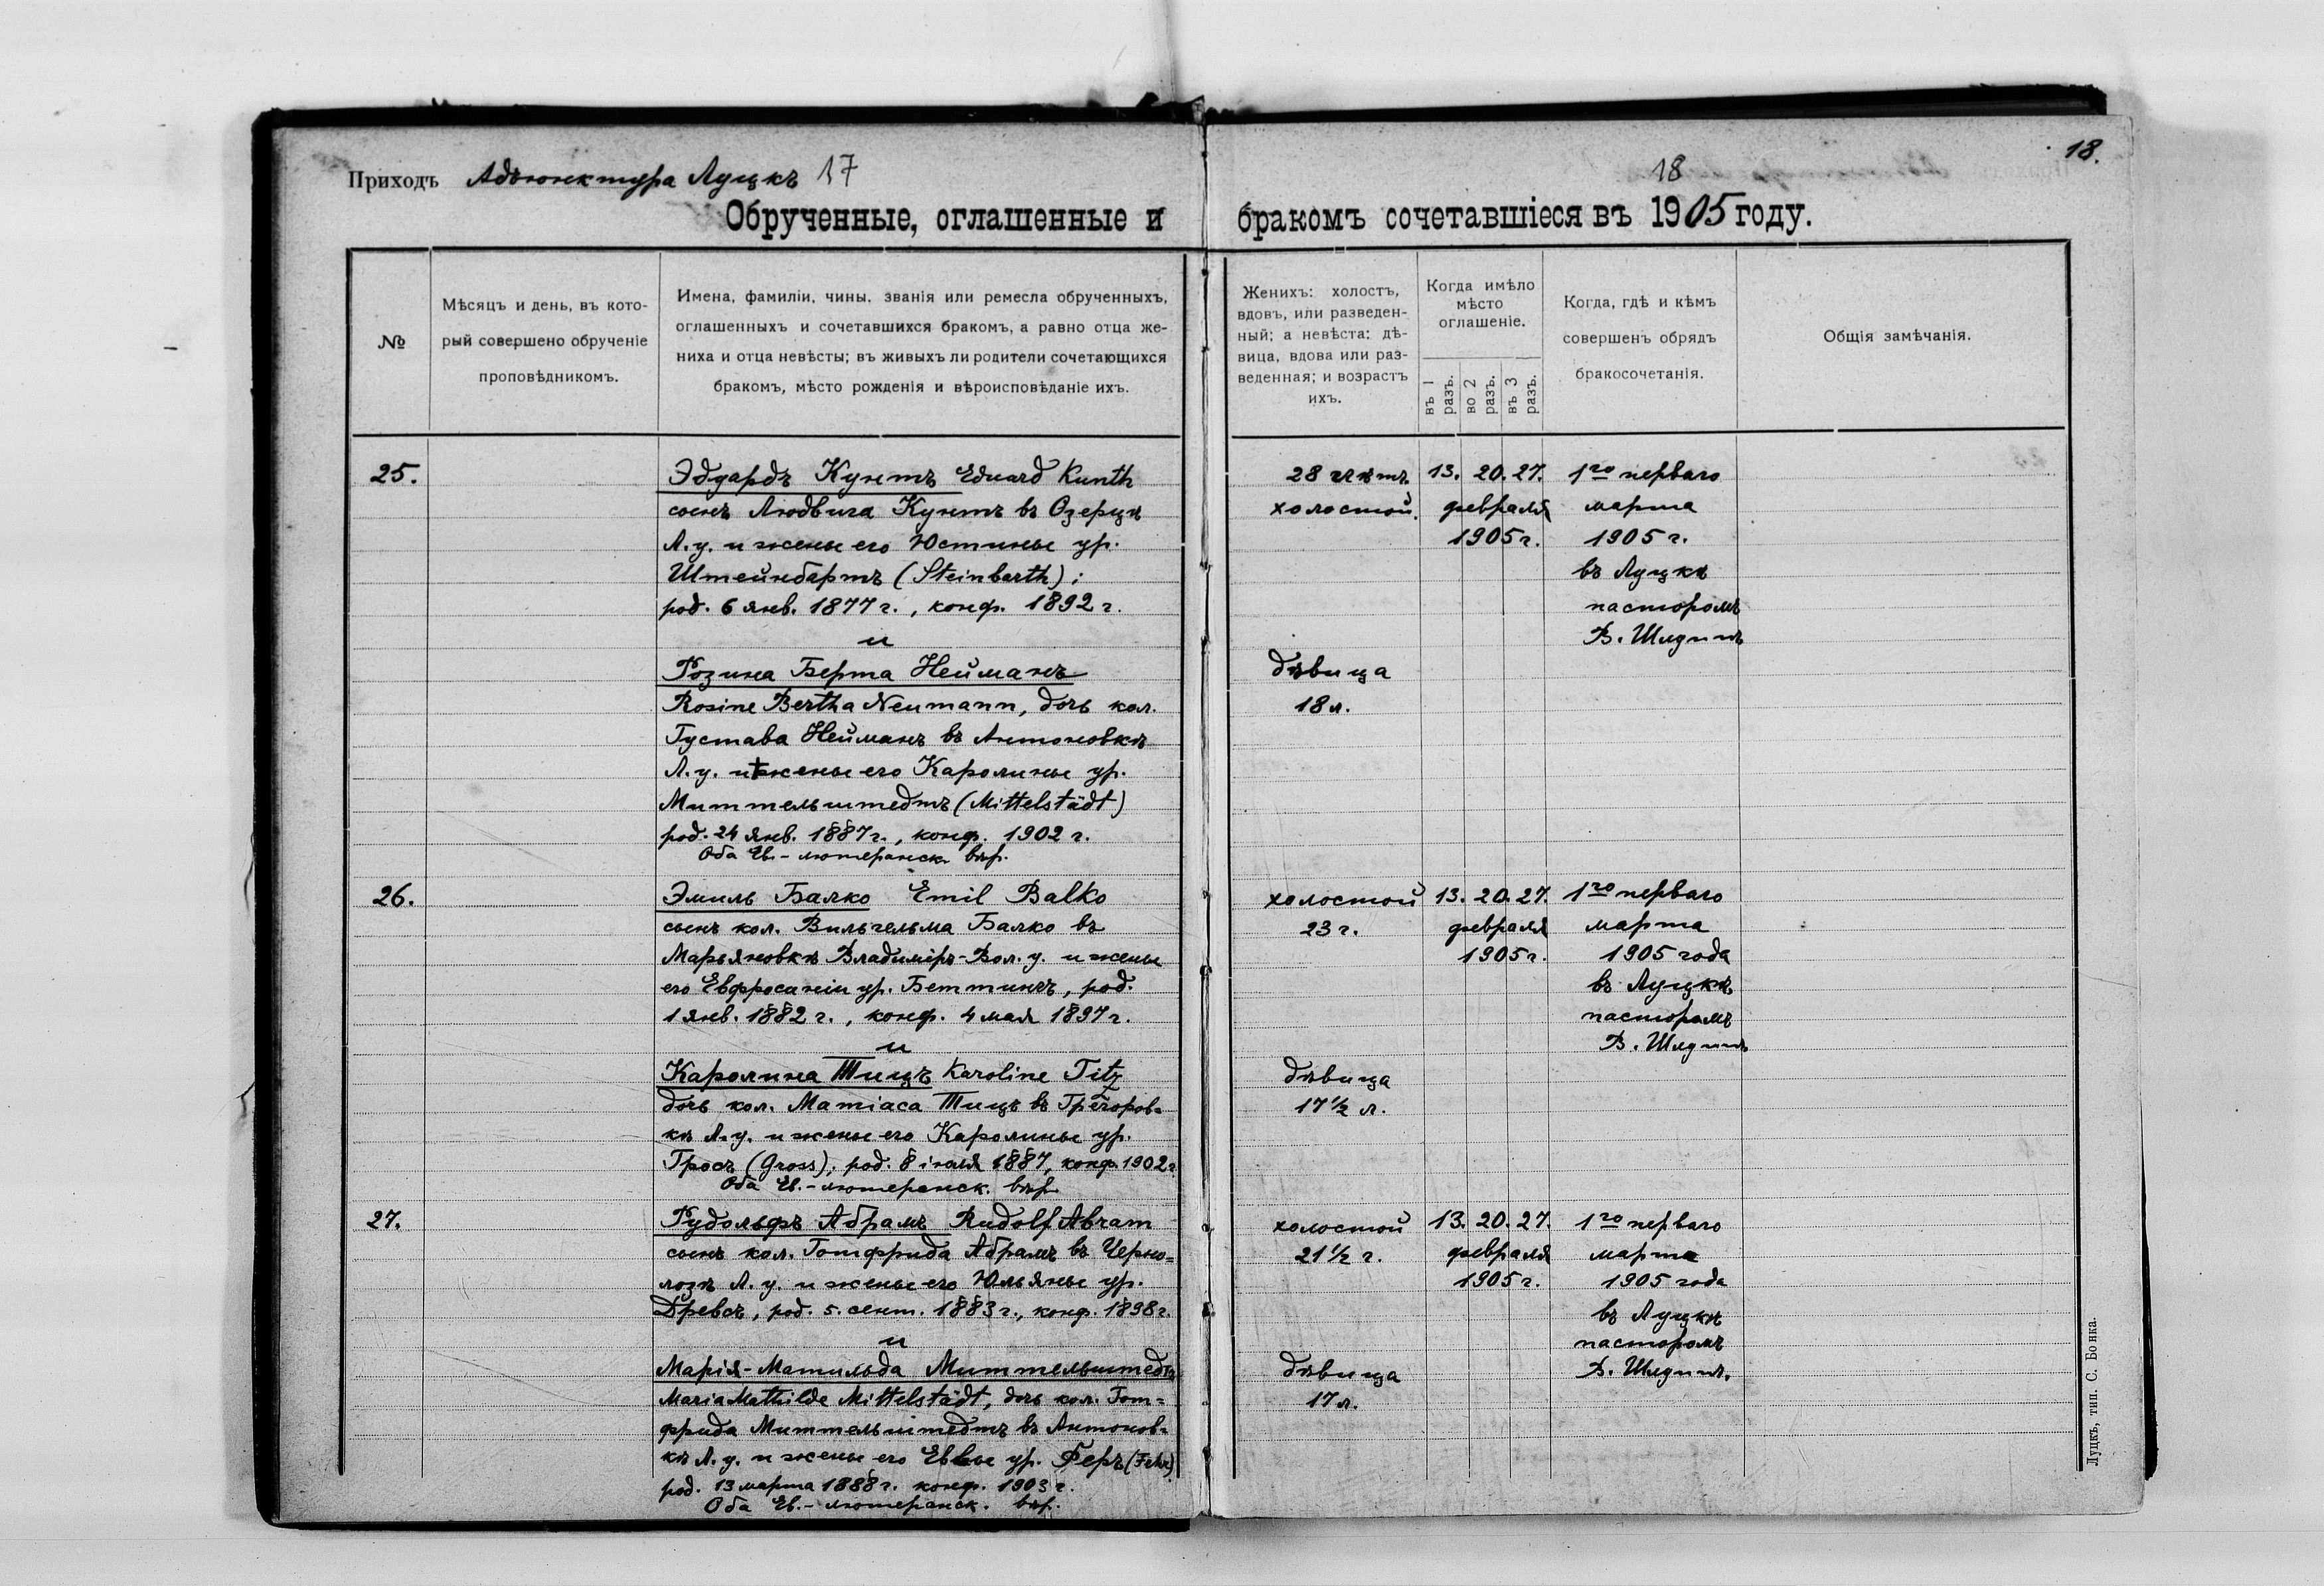 Приходъ Адъюнктура Луцкъ 17
Обрученные, оглашенные и
№
Мѣсяцъ и день, въ кото-
рый совершено обрученіе
проповѣдникомъ.
Имена, фамиліи, чины, званія или ремесла обрученныхъ,
оглашенныхъ и сочетавшихся бракомъ, а равно отца же-
ниха и отца невѣсты; въ живыхъ ли родители сочетающихся
бракомъ, мѣсто рожденія и вѣроисповѣданіе ихъ.
25.
Эдуардъ Кунтъ Eduard Kunth
сынъ Людвига Кунтъ въ Озерцѣ
Л. у. и жены его Юстины ур.
Штейнбартъ (Steinbarth);
род. 6 янв. 1877 г., конф. 1892 г.
и
Розина Берта Нейманъ
Rosine Bertha Neumann, дочь кол.
Густава Нейманъ въ Антоновкѣ
Л. у. и † жены его Каролины ур.
Миттельштедтъ (Mittelstädt)
род. 24 янв. 1887 г., конф. 1902 г.
Оба Ев.-лютеранск. вѣр.
26.
Эмиль Балко Emil Balko
сынъ кол. Вильгельма Балко въ
Марьяновкѣ Владимір-Вол. у. и жены
его Евфросиніи ур. Беттинъ, род.
1 янв. 1882 г., конф. 4 мая 1897 г.
и
Каролина Тицъ Karoline Titz
дочь кол. Матіаса Тицъ въ Грегоров=
кѣ Л. у. и жены его Каролины ур.
Гросъ (Gross), род. 8 іюля 1887, конф. 1902 г
Оба Ев.-лютеранск. вѣр.
27.
Рудольфъ Абрамъ Rudolf Abram
сынъ кол. Готфрида Абрамъ въ Черно=
лозѣ Л. у. и жены его Юльяны ур.
Древсъ, род. 5. сент. 1883 г., конф. 1898 г.
и
Марія-Матильда Миттельштедтъ
Maria Mathilde Mittelstädt, дочь кол. Гот=
фрида Миттельштедтъ въ Антонов=
кѣ Л. у. и жены его Еввы ур. Феръ (Fehr)
род. 13 марта 1888 г. конф. 1903 г.
Оба Ев.-лютеранск. вѣр.
18.
18
бракомъ сочетавшіеся въ 1905 году.
Женихъ: холостъ,
вдовъ, или разведен-
ный; а невѣста: дѣ-
вица, вдова или раз-
веденная; и возрастъ
ихъ.
Когда имѣло
мѣсто
оглашеніе.
въ 1 разъ.
во 2 разъ.
въ 3 разъ.
Когда, гдѣ и кѣмъ
совершенъ обрядъ
бракосочетанія.
Общія замѣчанія.
28 лѣтъ 13. 20. 27. 1го перваго
холостой. февраля марта
1905 г. 1905 г.
въ Луцкѣ
пасторомъ
В. Шлуппъ
дѣвица
18 л.
холостой 13. 20. 27. 1го перваго
23 г. февраля марта
1905 г. 1905 года
въ Луцкѣ
пасторомъ
В. Шлуппъ
дѣвица
17 ½ л.
холостой 13. 20. 27. 1го перваго
21 ½ г. февраля марта
1905 г. 1905 года
въ Луцкѣ
пасторомъ
В. Шлуппъ.
дѣвица
17 л.
Луцкъ, тип. С. Бонка.